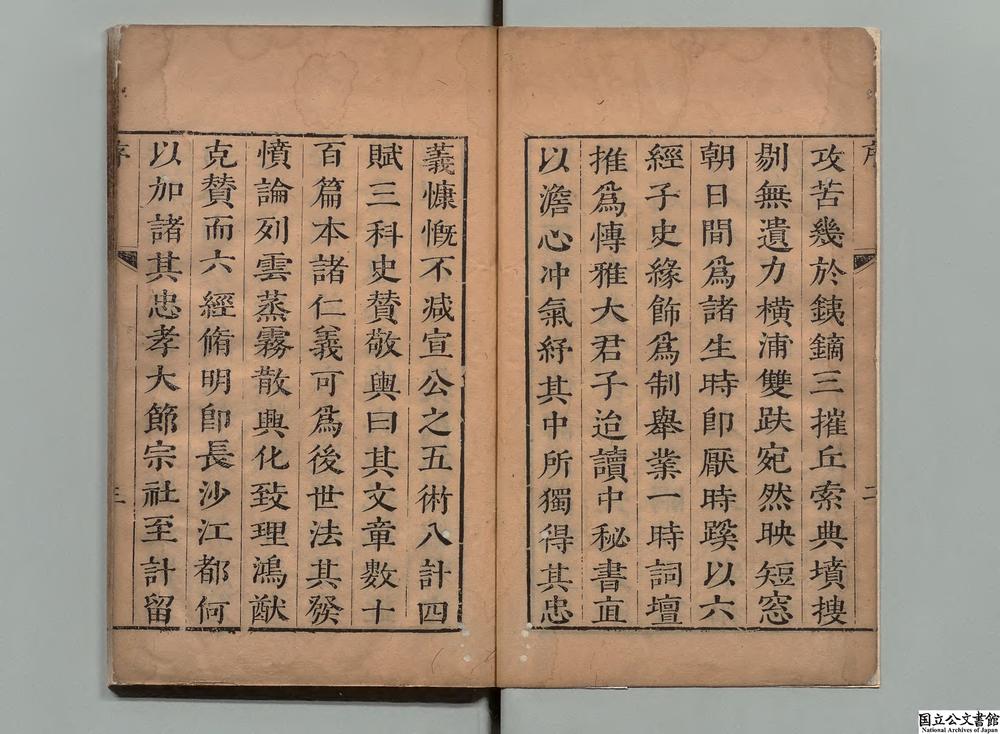 攻苦幾於鐵鏑三摧丘索典墳搜
剔無遺力橫浦雙趺宛然映短窓
朝日間為諸生時即厭時蹊以六
經子史緣飾為制舉業一時詞壇
推為愽雅大君子迨讀中秘書直
以澹心冲氣紓其中所獨得其忠
義慷慨不減宣公之五術八計四
賦三科史贊敬輿曰其文章數十
百篇本諸仁義可為後世法其發
憤論列雲蒸霧散興化致理鴻猷
克贊而六經脩明即長沙江都何
以加諸其忠孝大節宗社至計留
序
三
国立公文書館
National Archives of Japan